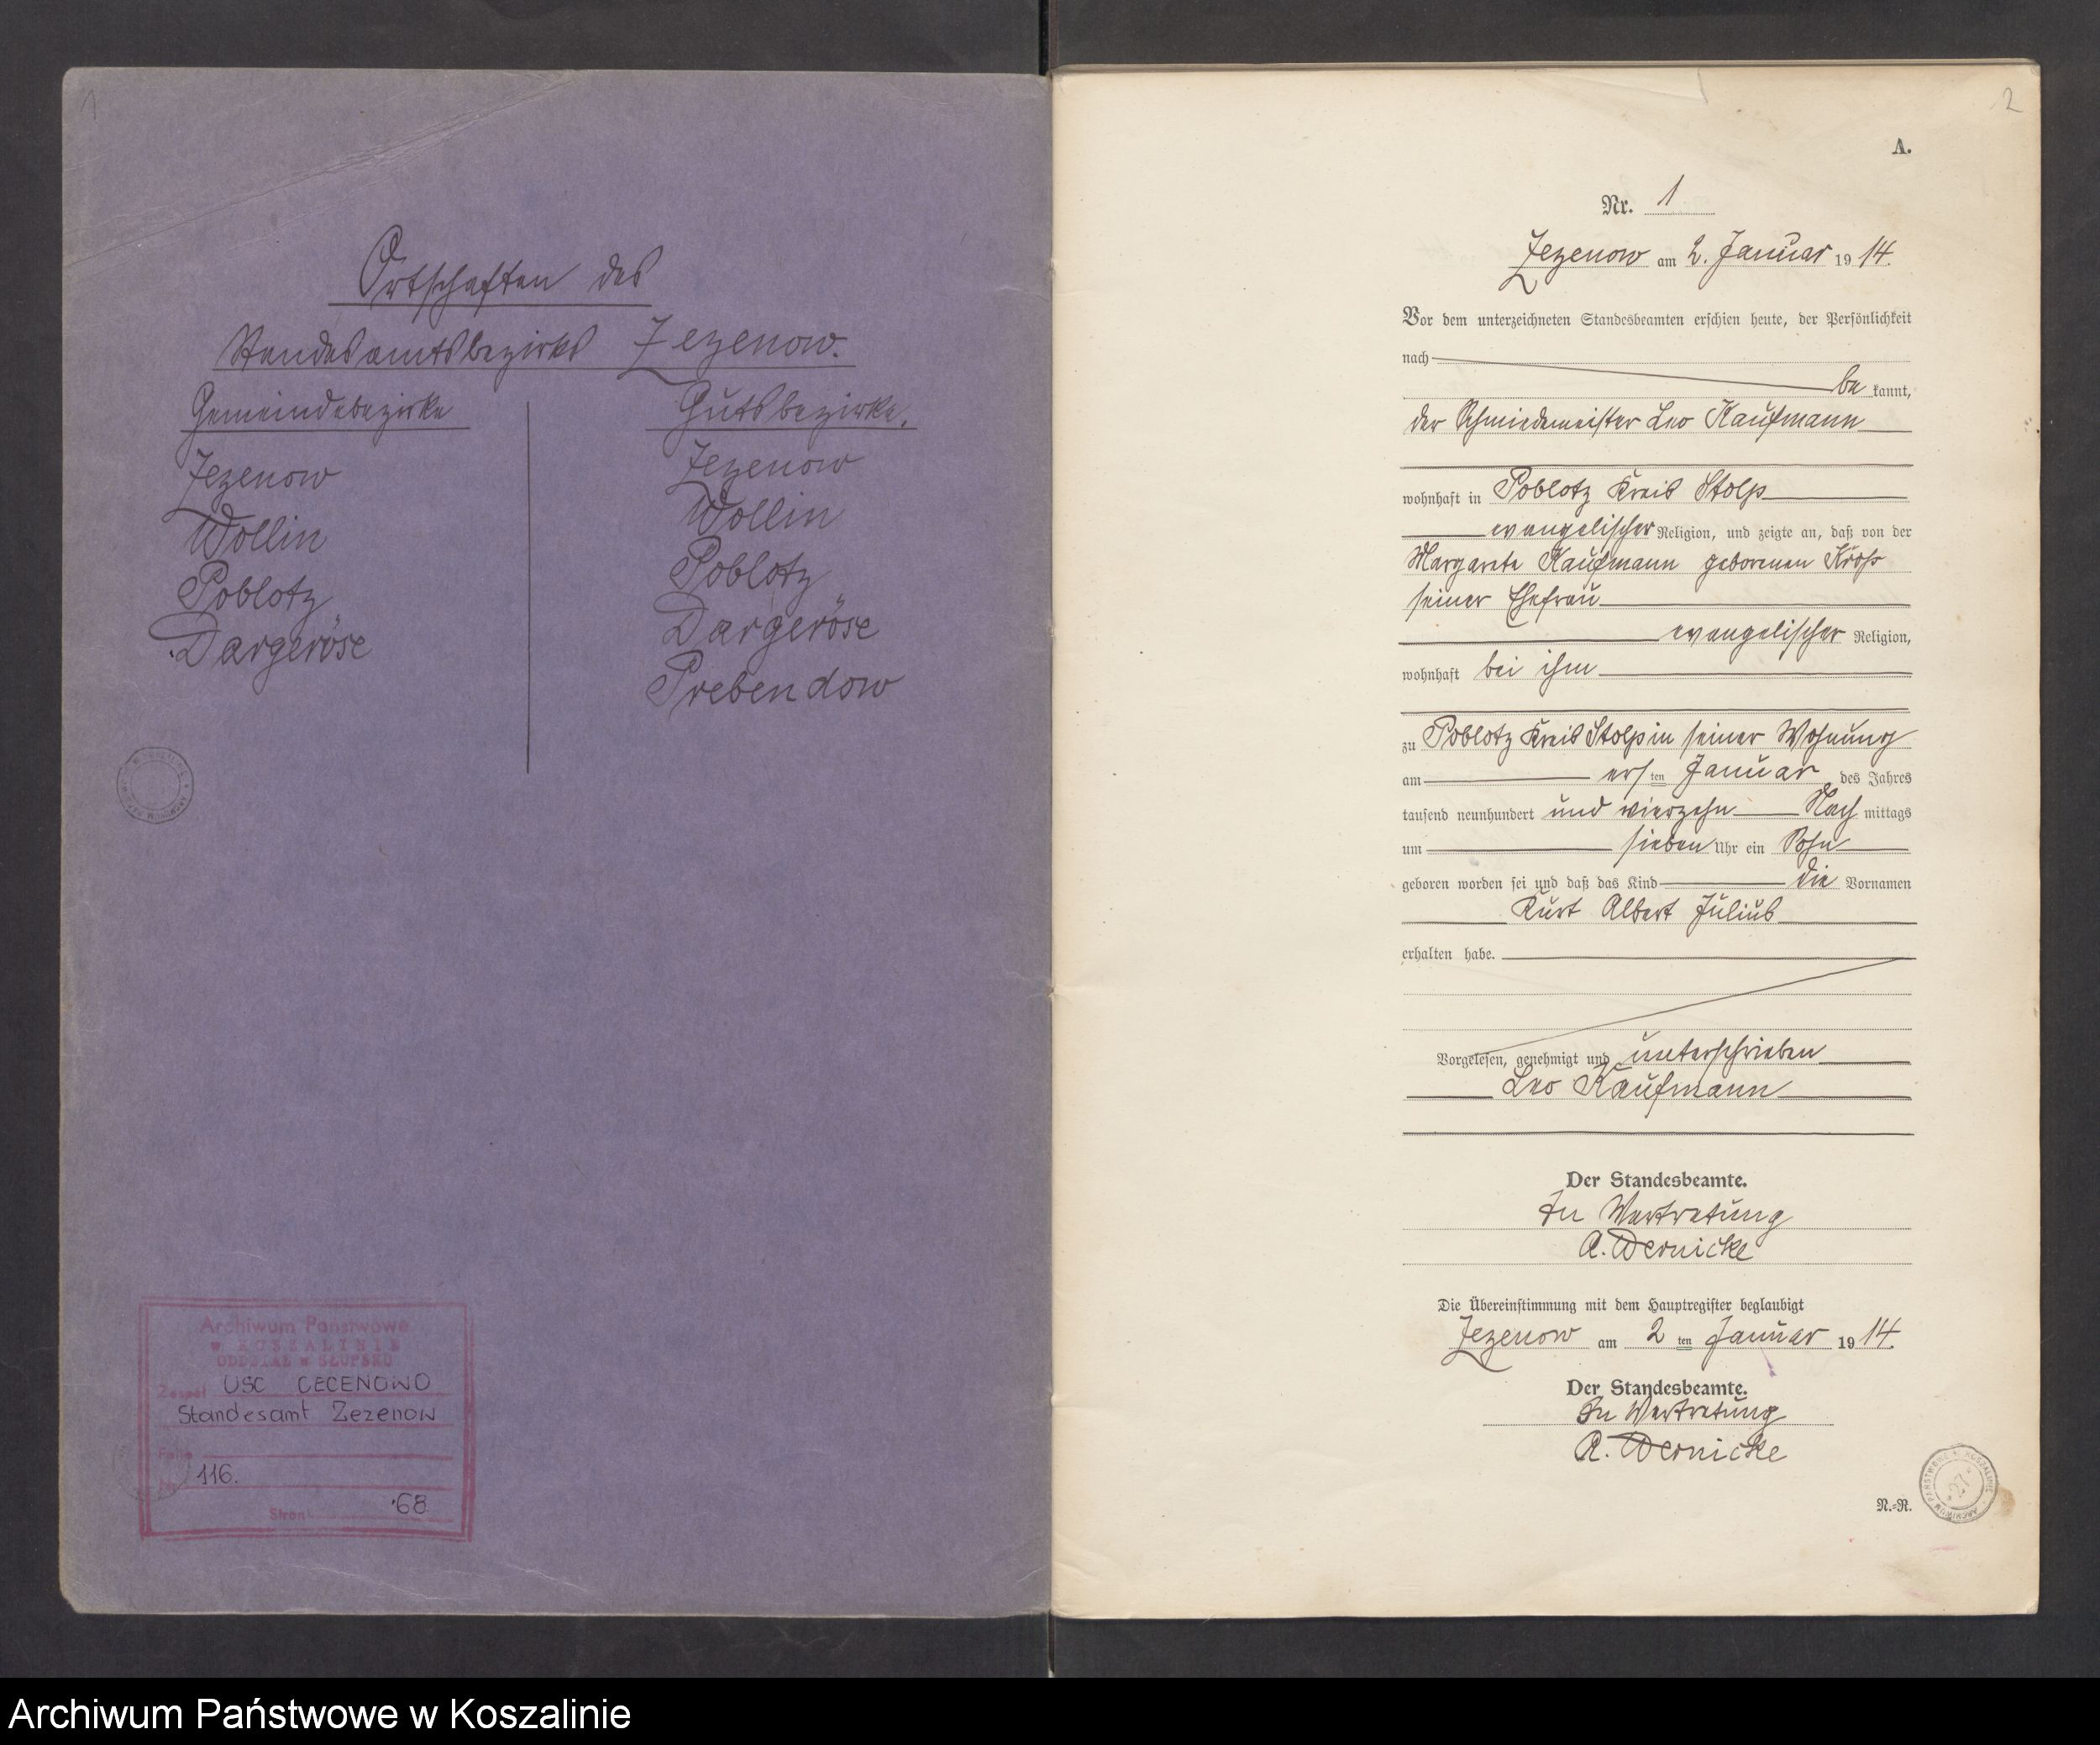 1
Ortschaften des
Standesamtsbezirks Zezenow.
Gemeindebezirke
Zezenow
Wollin
Poblotz
Dargeröse
Gutsbezirke.
Zezenow
Wollin
Poblotz
Dargeröse
Prebendow
Archiwum Państwowe
w KOSZALINIE
ODDZIAŁ w SŁUPSKU
Zespół USC CECENOWO
Standesamt Zezenow
Nr 116.
Stron 68
2
A.
Nr. 1
Zezenow am 2. Januar 1914.
Vor dem unterzeichneten Standesbeamten erschien heute, der Persönlichkeit
nach
be kannt,
der Schmiedemeister Leo Kaufmann
wohnhaft in Poblotz Kreis Stolp
evangelischer Religion, und zeigte an, daß von der
Margarete Kaufmann geborenen
seiner Ehefrau
evangelischer Religion,
wohnhaft bei ihm
zu Poblotz Kreis Stolp in seiner Wohnung
am ersten Januar des Jahres
tausend neunhundert und vierzehn Nach mittags
um sieben Uhr ein Sohn
geboren worden sei und daß das Kind die Vornamen
Kurt Albert Julius
erhalten habe.
Vorgelesen, genehmigt und unterschrieben
Leo Kaufmann
Der Standesbeamte.
In Vertretung
A. Wernicke
Die Übereinstimmung mit dem Hauptregister beglaubigt
Zezenow am 2 ten Januar 1914.
Der Standesbeamte.
In Vertretung
A. Wernicke
N.-R.
Archiwum Państwowe w Koszalinie